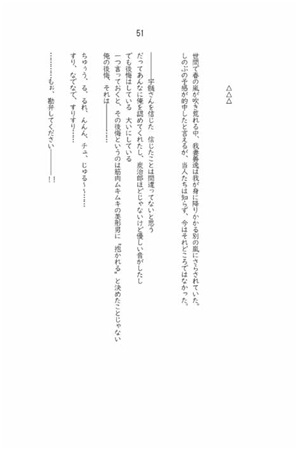 51
△△△
世間で春の風が吹き荒れる中、我妻善逸は我が身に降りかかる別の嵐にさらされていた。
しのぶの予感が的中したと言えるが、当人たちは知らず、今はそれどころではなかった。
――宇髄さんを信じた　信じたことは間違ってないと思う
だってあんなに俺を認めてくれたし、炭治郎ほどじゃないけど優しい音がしたし
でも後悔はしている　大いにしている
一つ言っておくと、その後悔というのは筋肉ムキムキの美形男に〝抱かれる〟と決めたことじゃない
俺の後悔、それは――
ちゅぅう、る、るれ、んんん、チュ、じゅる～～……
すり、なでなで、すりすり……
…………もぉ、勘弁してください――――！！